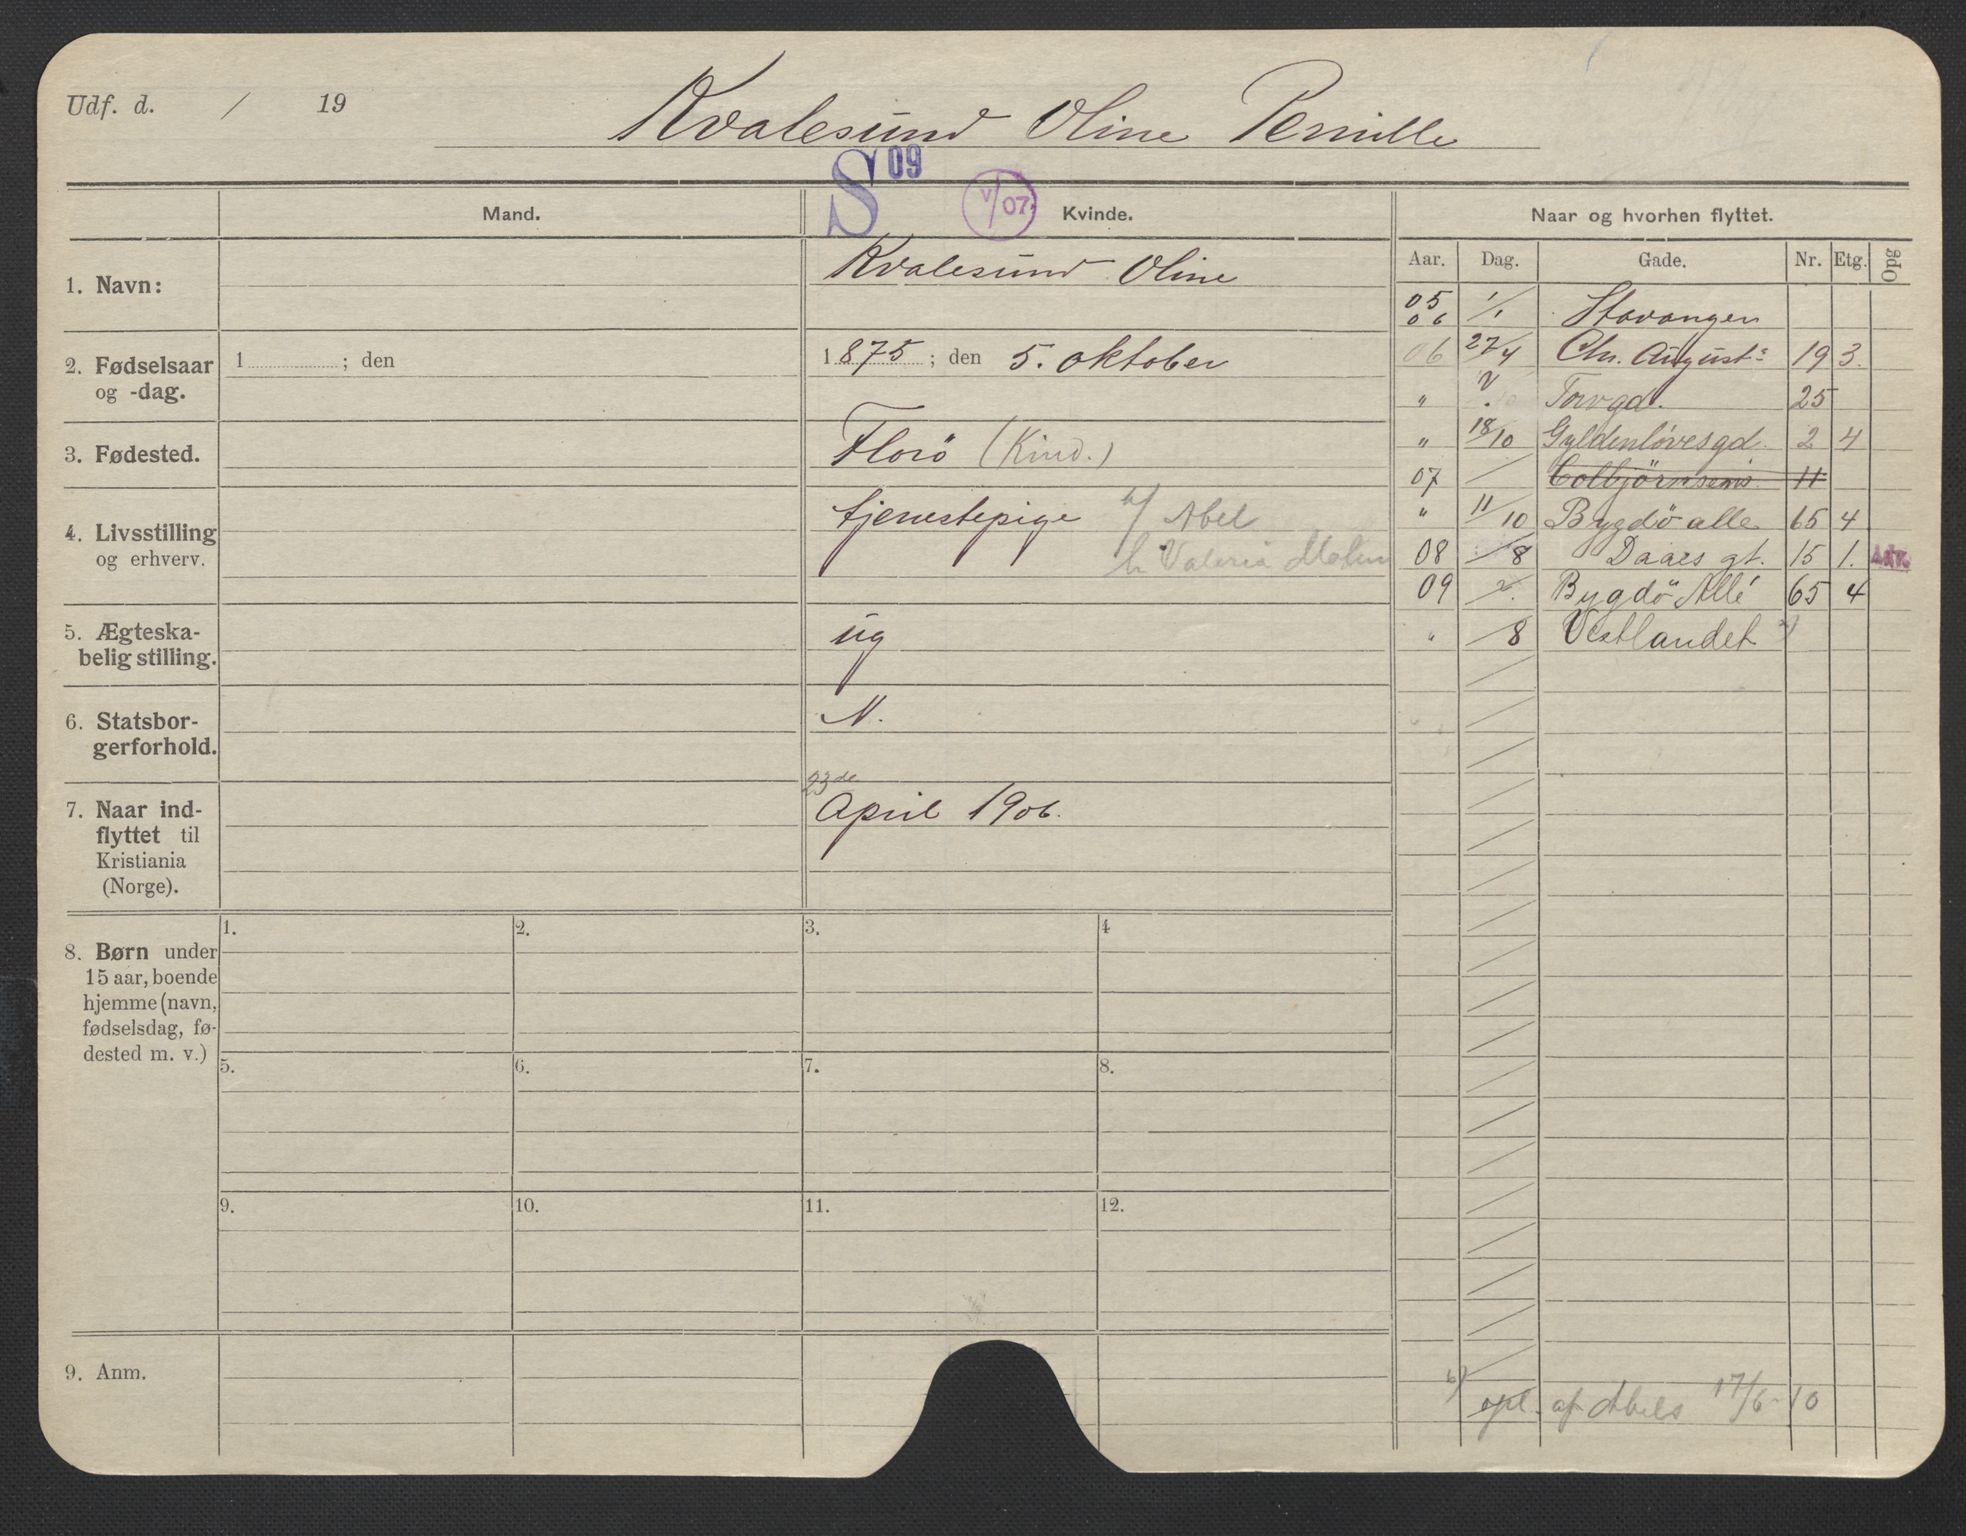 Udf. d. / 19
Kvalesund Oline Pernille
S 09
V/07
Mand.
Kvinde.
Naar og hvorhen flyttet.
Aar. Dag. Gade. Nr. Etg. Opg
1. Navn:
Kvalesund Oline
2. Fødselsaar
og -dag.
1 ; den
1875 ; den 5. oktober
3. Fødested.
Florö (Kind.)
4. Livsstilling
og erhverv.
tjenestepige h/ Abel
h. Valeria
5. Ægteska-
belig stilling.
ug
6. Statsbor-
gerforhold.
N.
7. Naar ind-
flyttet til
Kristiania
(Norge).
23de
April 1906.
8. Børn under
15 aar, boende
hjemme (navn,
fødselsdag, fø-
dested m. v.)
1. 2. 3. 4
5. 6. 7. 8.
9. 10. 11. 12.
9. Anm.
05
06 1/1 Stavanger
06 27/4 Chr. Augusts 19 3.
" ? Torvgd. 25
" 18/10 Gyldenløvesgd. 2 4
07 / Colbjörnsens 11
" 11/10 Bygdö alle 65 4
08 /8 Daaes gt. 15 1. Adr.
09 Bygdö Allé 65 4
" /8 Vestlandet
opl. af Abels 17/6-10